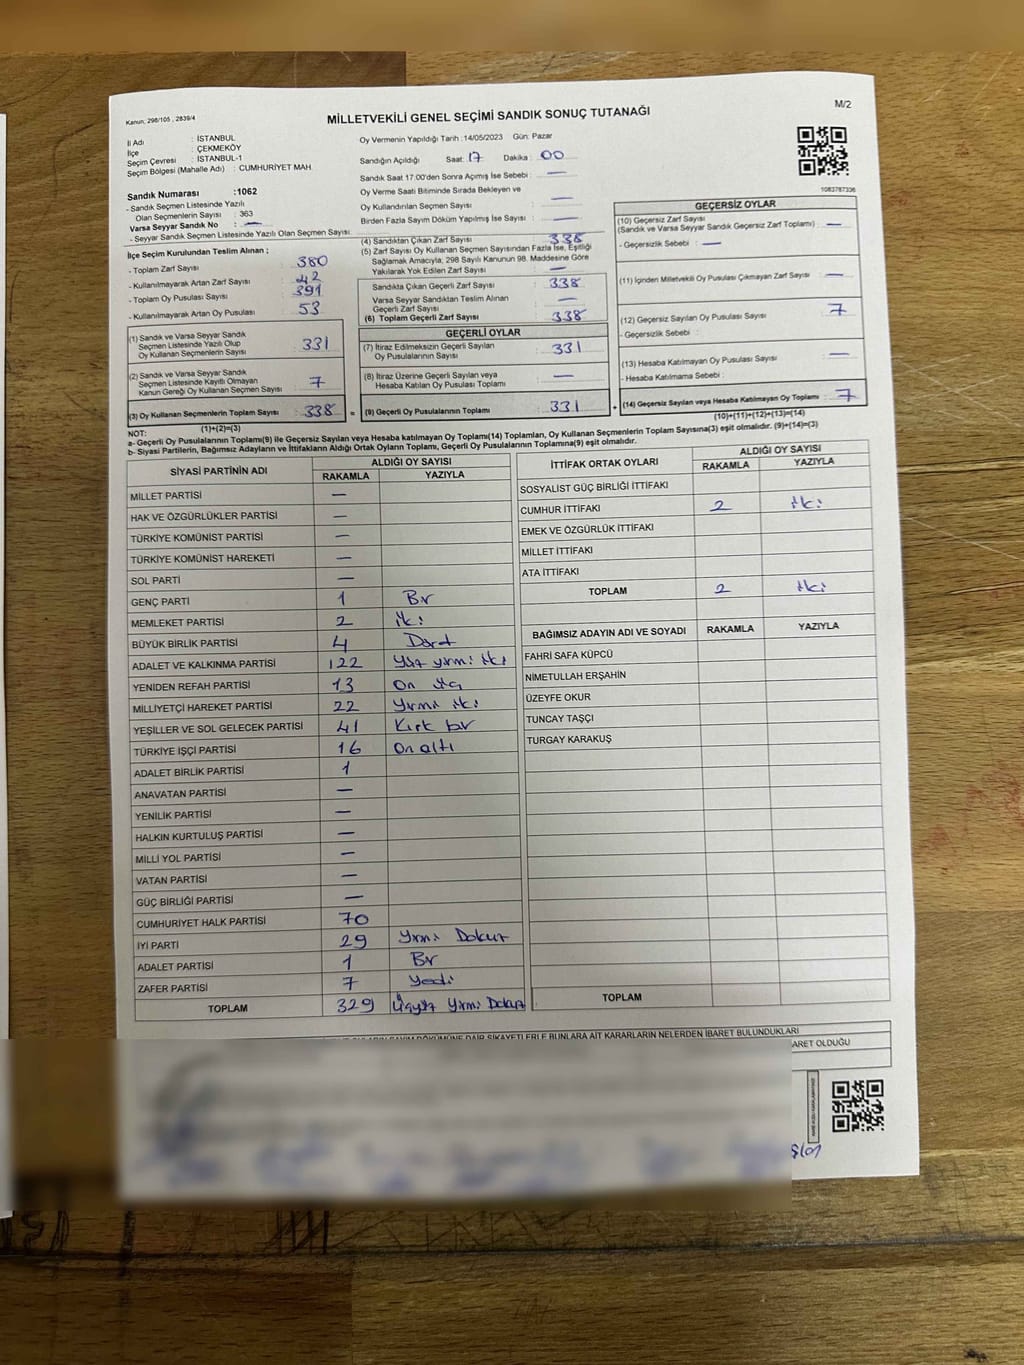 Kanun: 298/105 , 2839/4
MİLLETVEKİLİ GENEL SEÇİMİ SANDIK SONUÇ TUTANAĞI
M/2
İl Adı : İSTANBUL
İlçe : ÇEKMEKÖY
Seçim Çevresi : İSTANBUL-1
Seçim Bölgesi (Mahalle Adı) : CUMHURİYET MAH
Sandık Numarası :1062
- Sandık Seçmen Listesinde Yazılı
Olan Seçmenlerin Sayısı : 363
Varsa Seyyar Sandık No : —
- Seyyar Sandık Seçmen Listesinde Yazılı Olan Seçmen Sayısı:
Oy Vermenin Yapıldığı Tarih :14/05/2023 Gün: Pazar
Sandığın Açıldığı Saat: 17 Dakika : 00
Sandık Saat 17:00'den Sonra Açılmış İse Sebebi : —
Oy Verme Saati Bitiminde Sırada Bekleyen ve
Oy Kullandırılan Seçmen Sayısı : —
Birden Fazla Sayım Döküm Yapılmış İse Sayısı : —
1083787336
İlçe Seçim Kurulundan Teslim Alınan ;
- Toplam Zarf Sayısı : 380
- Kullanılmayarak Artan Zarf Sayısı : 42
- Toplam Oy Pusulası Sayısı : 391
- Kullanılmayarak Artan Oy Pusulası : 53
(1) Sandık ve Varsa Seyyar Sandık
Seçmen Listesinde Yazılı Olup
Oy Kullanan Seçmenlerin Sayısı : 331
(2) Sandık ve Varsa Seyyar Sandık
Seçmen Listesinde Kayıtlı Olmayan
Kanun Gereği Oy Kullanan Seçmen Sayısı : 7
(3) Oy Kullanan Seçmenlerin Toplam Sayısı : 338 =
(1)+(2)=(3)
(4) Sandıktan Çıkan Zarf Sayısı : 338
(5) Zarf Sayısı Oy Kullanan Seçmen Sayısından Fazla İse, Eşitliği
Sağlamak Amacıyla, 298 Sayılı Kanunun 98. Maddesine Göre
Yakılarak Yok Edilen Zarf Sayısı : —
Sandıkta Çıkan Geçerli Zarf Sayısı : 338
Varsa Seyyar Sandıktan Teslim Alınan
Geçerli Zarf Sayısı : —
(6) Toplam Geçerli Zarf Sayısı : 338
GEÇERLİ OYLAR
(7) İtiraz Edilmeksizin Geçerli Sayılan
Oy Pusulalarının Sayısı : 331
(8) İtiraz Üzerine Geçerli Sayılan veya
Hesaba Katılan Oy Pusulası Toplamı : —
(9) Geçerli Oy Pusulalarının Toplamı : 331 +
GEÇERSİZ OYLAR
(10) Geçersiz Zarf Sayısı
(Sandık ve Varsa Seyyar Sandık Geçersiz Zarf Toplamı) : —
- Geçersizlik Sebebi : —
(11) İçinden Milletvekili Oy Pusulası Çıkmayan Zarf Sayısı : —
(12) Geçersiz Sayılan Oy Pusulası Sayısı : 7
- Geçersizlik Sebebi :
(13) Hesaba Katılmayan Oy Pusulası Sayısı : —
- Hesaba Katılmama Sebebi :
(14) Geçersiz Sayılan veya Hesaba Katılmayan Oy Toplamı : 7
(10)+(11)+(12)+(13)=(14)
NOT:
a- Geçerli Oy Pusulalarının Toplamı(9) ile Geçersiz Sayılan veya Hesaba katılmayan Oy Toplamı(14) Toplamları, Oy Kullanan Seçmenlerin Toplam Sayısına(3) eşit olmalıdır. (9)+(14)=(3)
b- Siyasi Partilerin, Bağımsız Adayların ve İttifakların Aldığı Ortak Oyların Toplamı, Geçerli Oy Pusulalarının Toplamına(9) eşit olmalıdır.
SİYASİ PARTİNİN ADI ALDIĞI OY SAYISI
RAKAMLA YAZIYLA
MİLLET PARTİSİ —
HAK VE ÖZGÜRLÜKLER PARTİSİ —
TÜRKİYE KOMÜNİST PARTİSİ —
TÜRKİYE KOMÜNİST HAREKETİ —
SOL PARTİ —
GENÇ PARTİ 1 Bir
MEMLEKET PARTİSİ 2 iki
BÜYÜK BİRLİK PARTİSİ 4 Dört
ADALET VE KALKINMA PARTİSİ 122 Yüz yirmi iki
YENİDEN REFAH PARTİSİ 13 On üç
MİLLİYETÇİ HAREKET PARTİSİ 22 Yirmi iki
YEŞİLLER VE SOL GELECEK PARTİSİ 41 Kırk bir
TÜRKİYE İŞÇİ PARTİSİ 16 On altı
ADALET BİRLİK PARTİSİ 1
ANAVATAN PARTİSİ —
YENİLİK PARTİSİ —
HALKIN KURTULUŞ PARTİSİ —
MİLLİ YOL PARTİSİ —
VATAN PARTİSİ —
GÜÇ BİRLİĞİ PARTİSİ —
CUMHURİYET HALK PARTİSİ 70
İYİ PARTİ 29 Yirmi Dokuz
ADALET PARTİSİ 1 Bir
ZAFER PARTİSİ 7 Yedi
TOPLAM 329 Üçyüz Yirmi Dokuz
İTTİFAK ORTAK OYLARI ALDIĞI OY SAYISI
RAKAMLA YAZIYLA
SOSYALİST GÜÇ BİRLİĞİ İTTİFAKI
CUMHUR İTTİFAKI 2 iki
EMEK VE ÖZGÜRLÜK İTTİFAKI
MİLLET İTTİFAKI
ATA İTTİFAKI
TOPLAM 2 iki
BAĞIMSIZ ADAYIN ADI VE SOYADI RAKAMLA YAZIYLA
FAHRİ SAFA KÜPCÜ
NİMETULLAH ERŞAHİN
ÜZEYFE OKUR
TUNCAY TAŞÇI
TURGAY KARAKUŞ
TOPLAM
DÖKÜMÜNE DAİR ŞİKAYETLERLE BUNLARA AİT KARARLARIN NELERDEN İBARET BULUNDUKLARI
BARET OLDUĞU